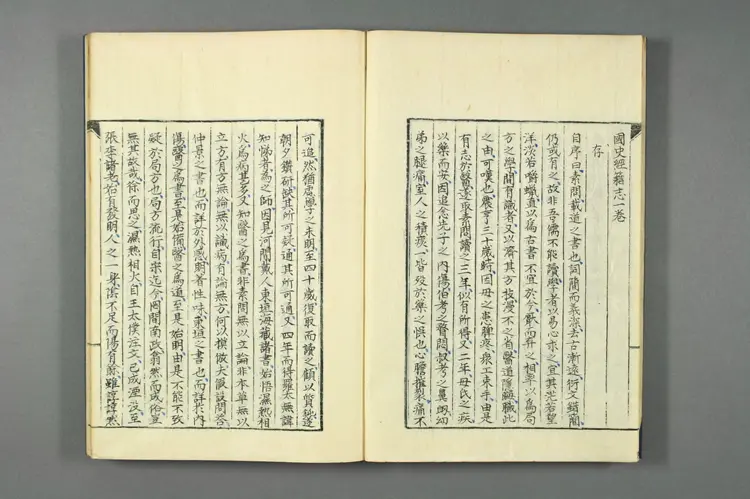 國史經籍志一卷
存
自序曰素問載道之書也詞簡而義深去古漸遠衍文錯簡
仍或有之故非吾儒不能讀學者以易心求之宜其茫若望
洋淡若嚼蠟直以爲古書不宜於今厭而棄之相率以爲局
方之學間有讀者又以濟其方技漫不之省醫道隱晦職此
之由可嘆也震亨三十歲時因母之患脾疼衆工束手由是
有志於醫遂取素問讀之三年似有所得又二年母氏之疾
以藥而安因追念先子之內傷伯考之瞀悶叔考之鼻衄幼
弟之腿痛室人之積痰一皆歿於藥之悞也心膽摧裂痛不
可追然猶慮學之未明至四十歲復取而讀之顧以質鈍遂
朝夕鑽研缺其所可疑通其所可通又四年而得羅太無諱
知悌者爲之師因見河間戴人東垣海藏諸書始悟濕熱相
火爲病甚多又知醫之爲書非素問無以立論非本草無以
立方有方無論無以識病有論無方何以模倣夫假說問答
仲景之書也而詳於外感明著性味東垣之書也而詳於內
傷醫之爲書至是始備醫之爲道至是始明由是不能不致
疑於局方也局方流行自宋迄今罔間南北翕然而成俗豈
無其故哉徐而思之濕熱相火自王太僕注文已成湮沒至
張李諸老始有發明人之一身陰不足而陽有餘雖諄諄然